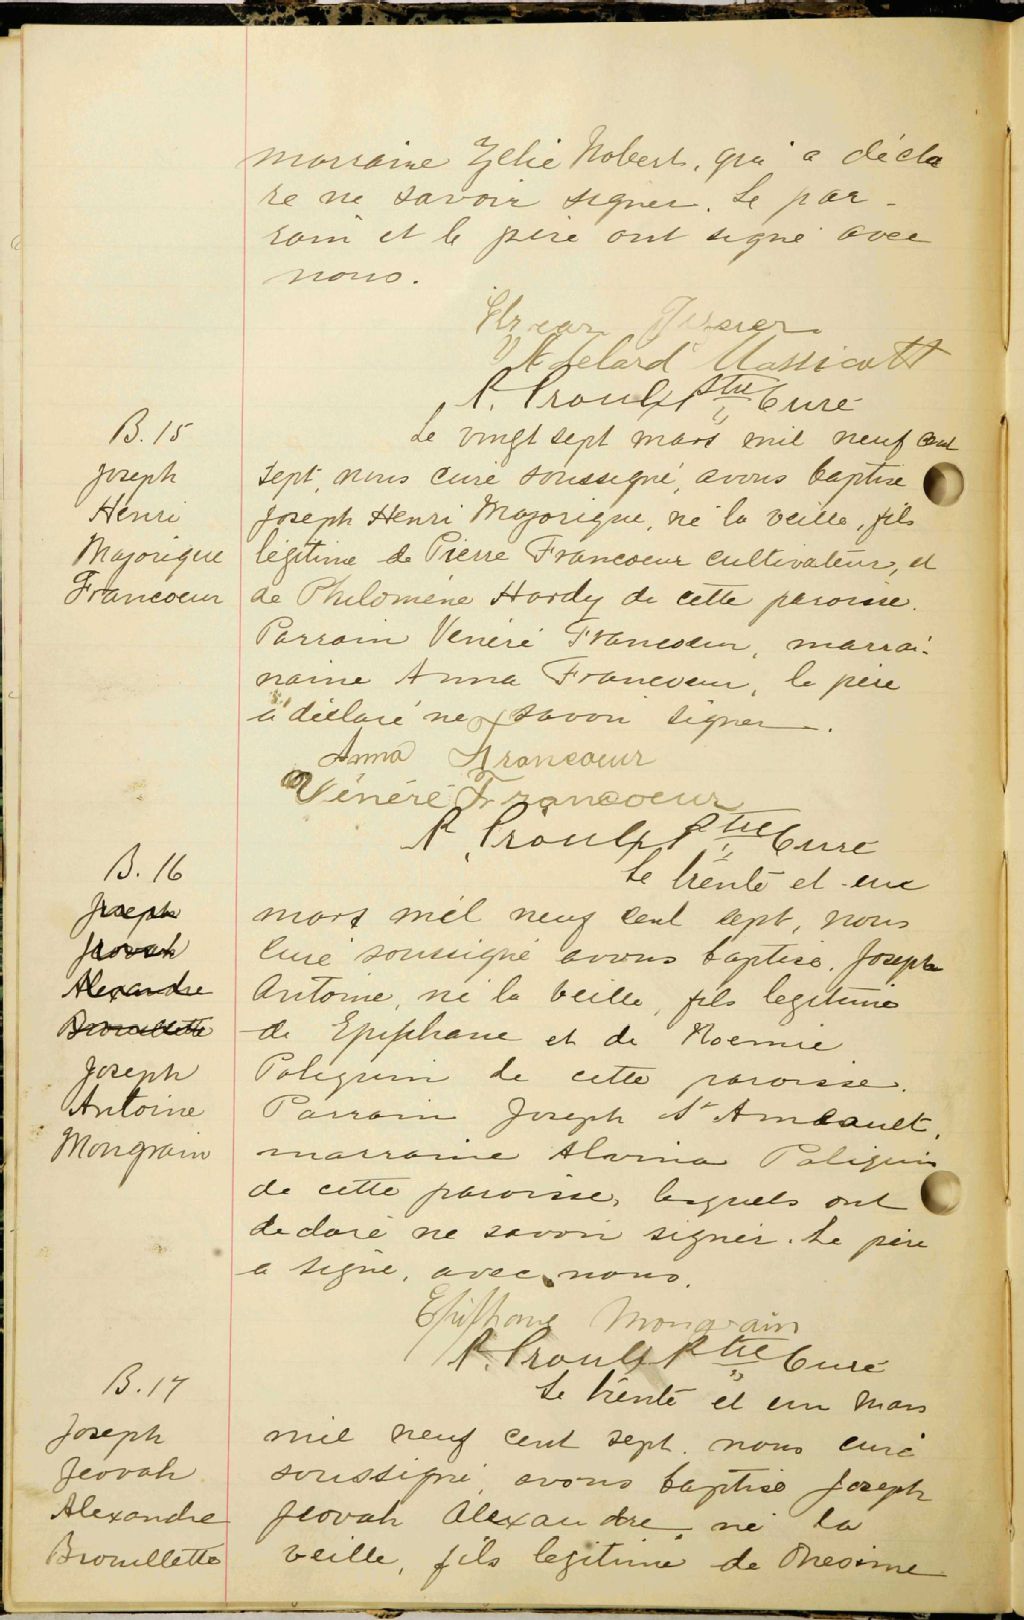 marraine Zelie Nobert, qui a décla
ré ne savoir signer. Le par-
rain et le père ont signé avec
nous.
Adelard Massicott
P. Proulx Ptre Curé
B. 15
Joseph
Henri
Majorique
Francoeur
Le vingt sept mars mil neuf cent
sept, nous curé soussigné, avons baptisé
Joseph Henri Majorique, né la veille, fils
légitime de Pierre Francoeur cultivateur, et
de Philomène Hardy de cette paroisse.
Parrain Vénéré Francoeur, marrai-
naine Anna Francoeur, le père
a déclaré ne savoir signer.
Anna Francoeur
Vénéré Francoeur
P. Proulx Ptre Curé
B. 16
Joseph
Jeovah
Alexandre
Brouillette
Joseph
Antoine
Mongrain
Le trente et un
mars mil neuf cent sept, nous
curé soussigné avons baptisé Joseph
Antoine, né la veille, fils legitime
de Epiphane et de Noemie
Paliquin de cette paroisse.
Parrain Joseph St Ameault,
marraine Alvina Paliquin
de cette paroisse, lesquels ont
declaré ne savoir signer. Le père
a signé, avec nous.
Epiphane Mongrain
P. Proulx Ptre Curé
B. 17
Joseph
Jeovah
Alexandre
Brouillette
Le trente et un mars
mil neuf cent sept. nous curé
soussigné avons baptisé Joseph
Jeovah Alexandre, né la
veille, fils legitime de Onesime